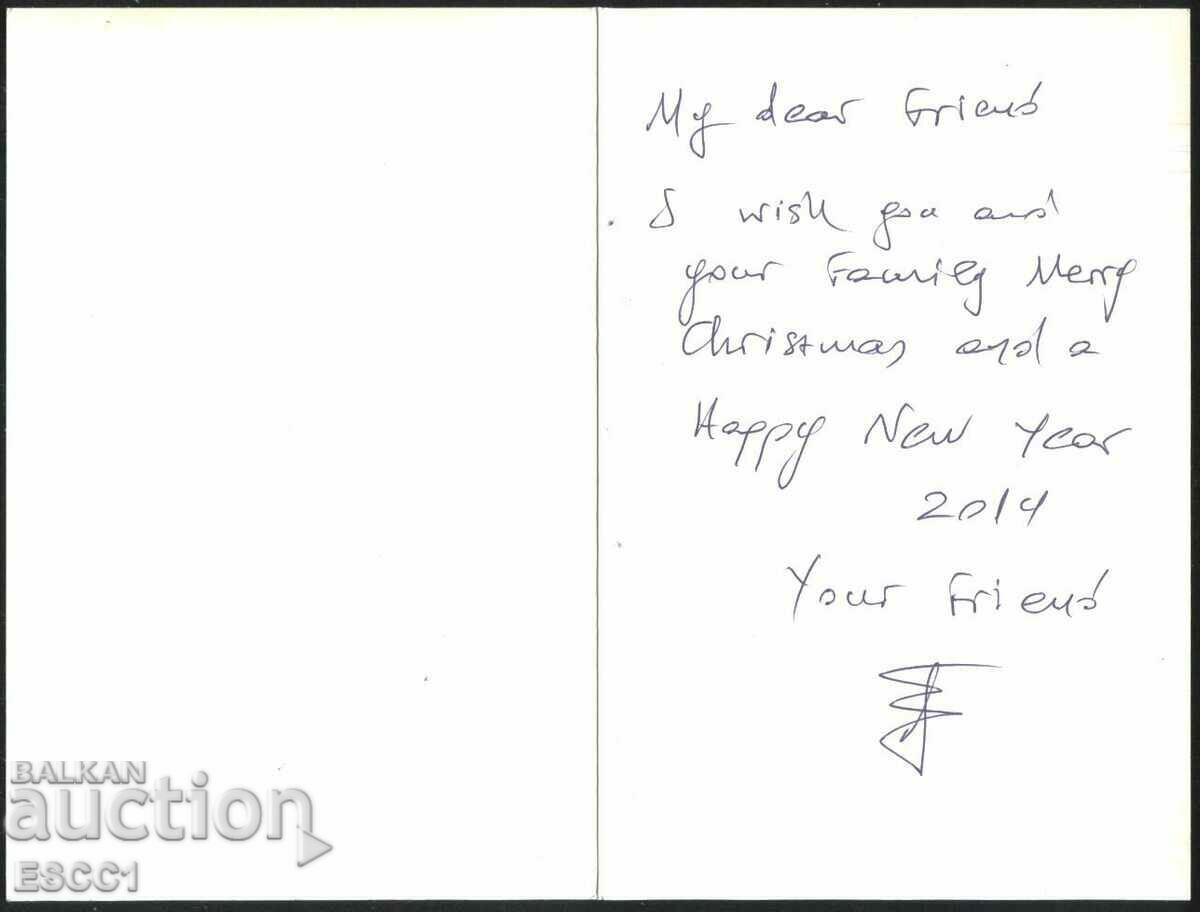 My dear Friend
I wish you and
your Family Merry
Christmas and a
Happy New Year
2014
Your Friend
BALKAN
auction
ESCC1